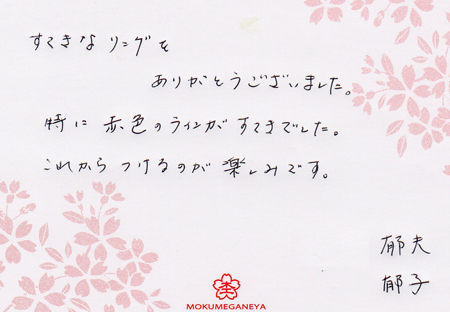 すてきなリングを
ありがとうございました。
特に赤色のラインがすてきでした。
これからつけるのが楽しみです。
郁夫
郁子
MOKUMEGANEYA